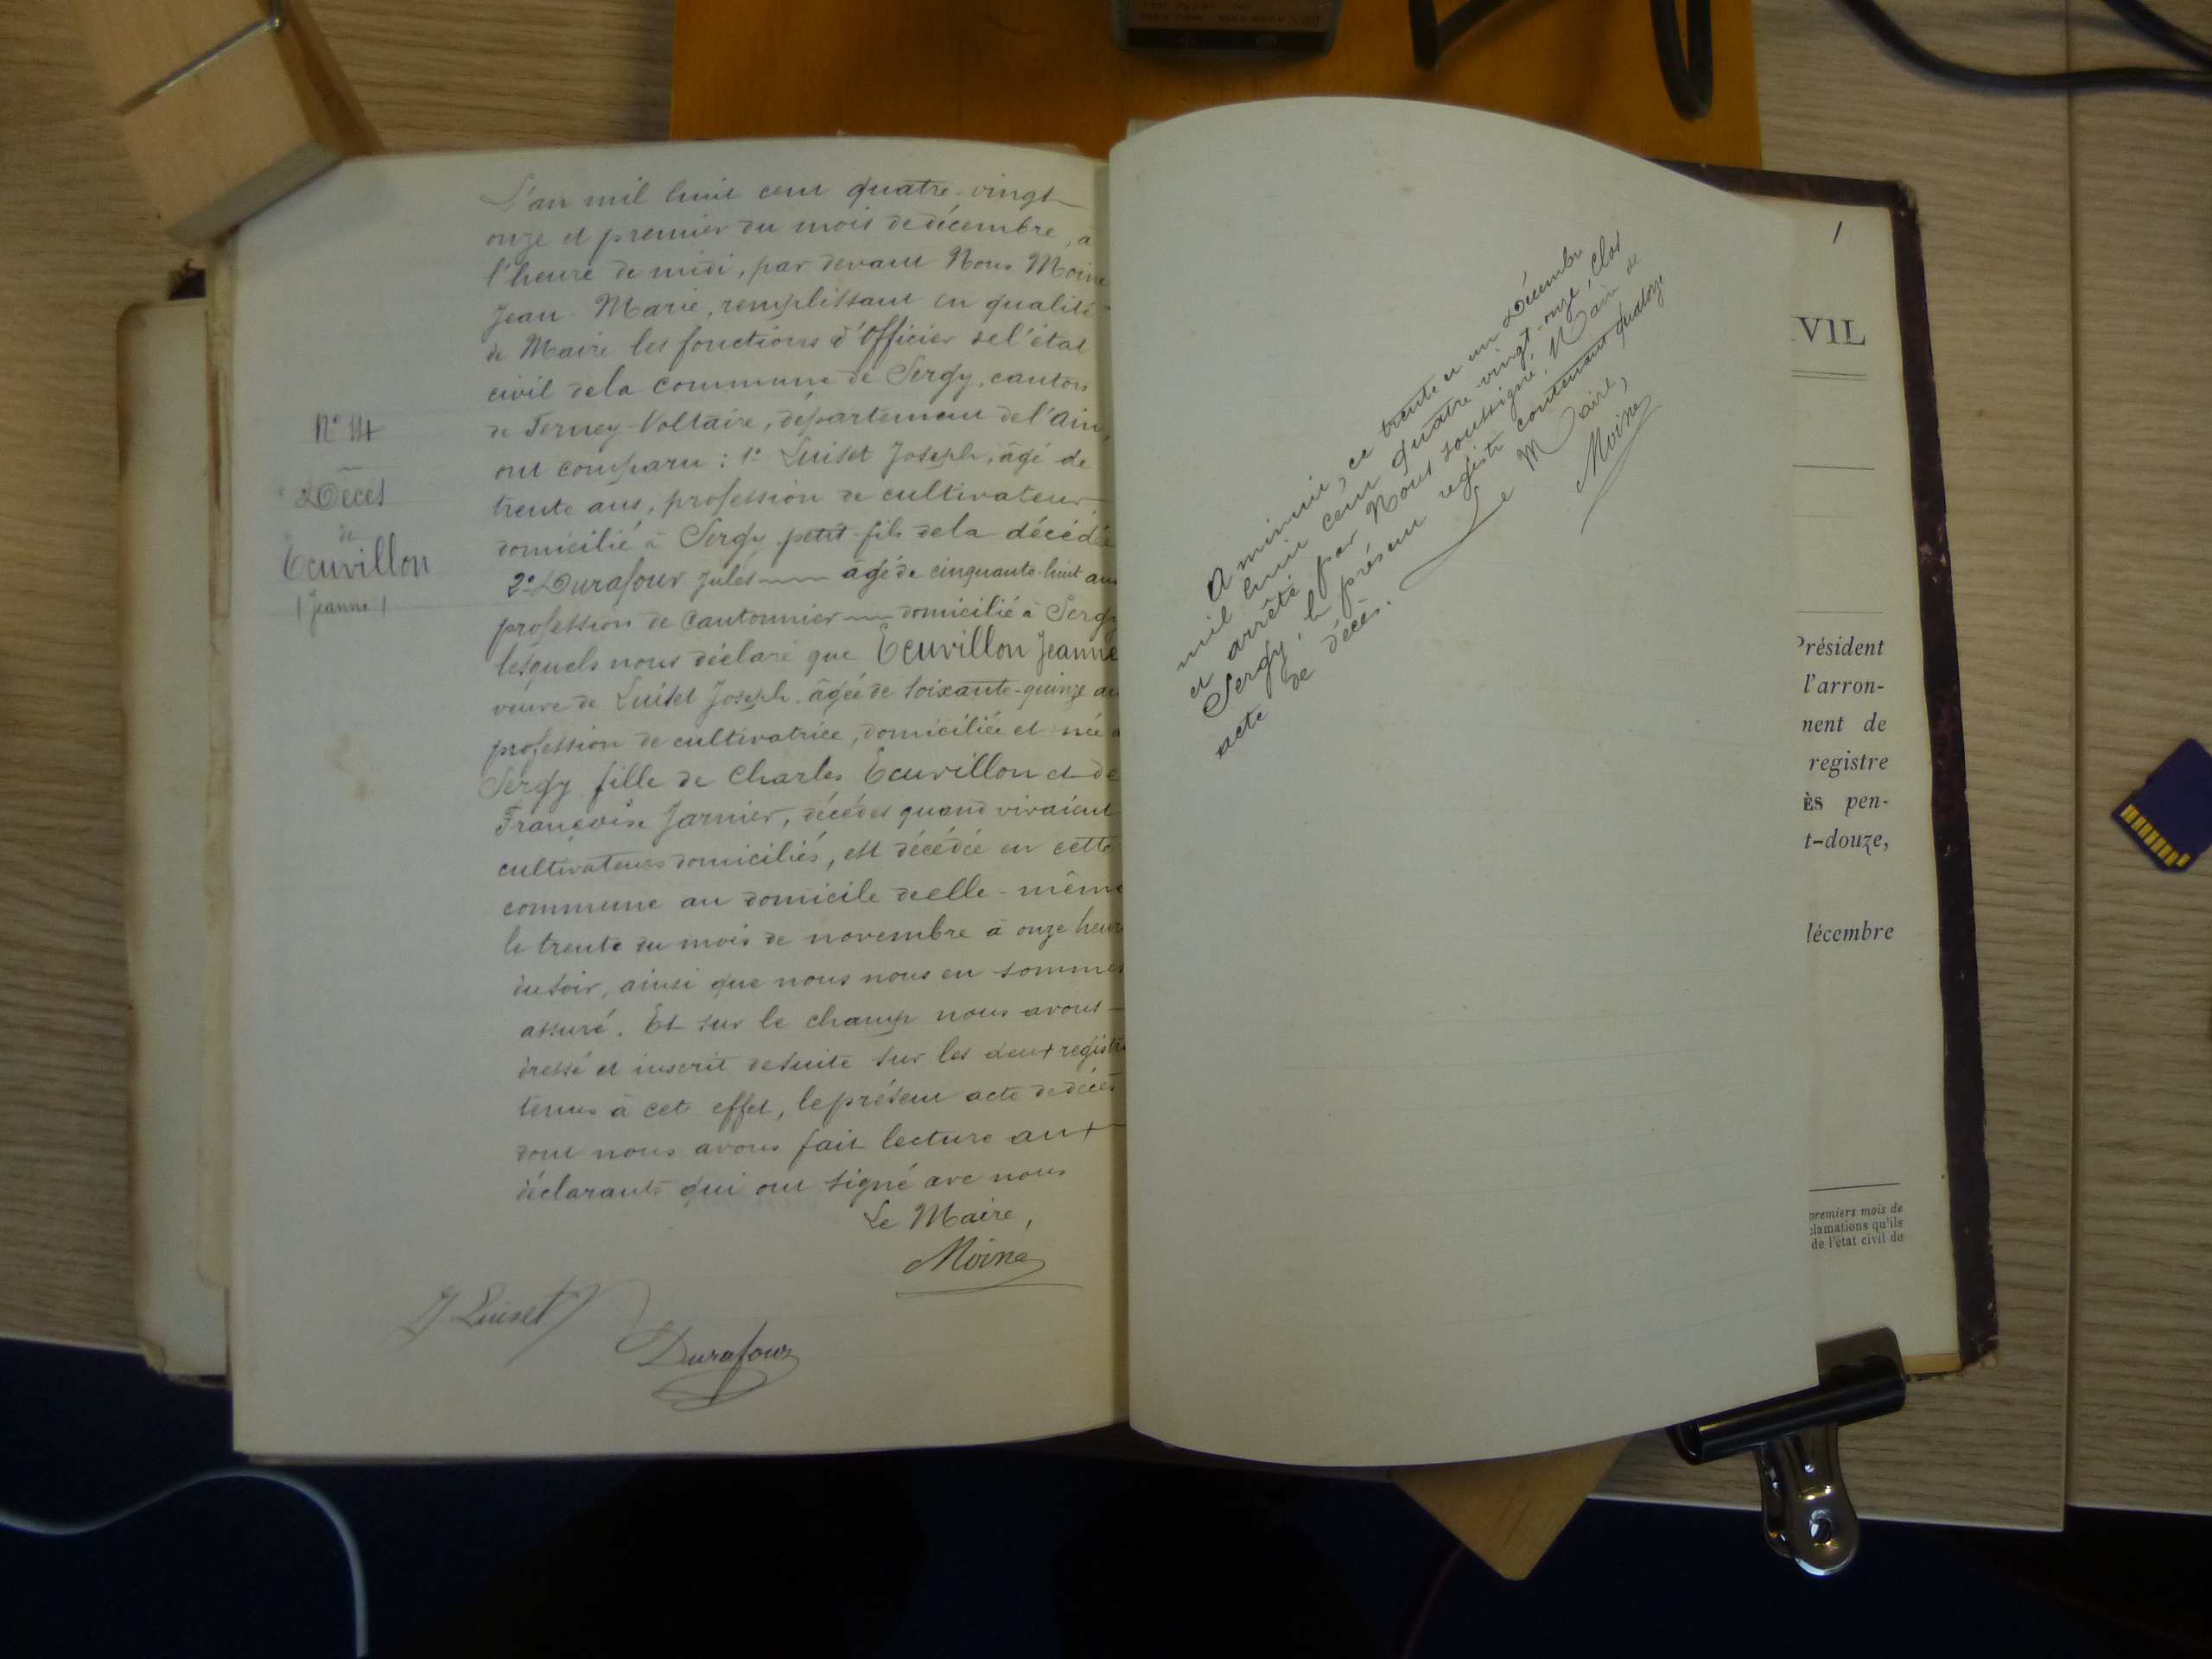 N° 14
Décès
de
Ecuvillon
(Jeanne)
L'an mil huit cent quatre-vingt
onze et premier du mois de décembre, à
l'heure de midi, par devant Nous Moine
Jean-Marie, remplissant en qualité
de Maire les fonctions d'Officier de l'état
civil de la commune de Sergy, canton
de Ferney-Voltaire, département de l'Ain,
ont comparu : 1° Luiset Joseph, âgé de
trente ans, profession de cultivateur,
domicilié à Sergy petit-fils de la décédée
2° Durafour Jules âgé de cinquante-huit ans
profession de cantonnier domicilié à Sergy
lesquels nous déclaré que Ecuvillon Jeanne
veuve de Luiset Joseph, âgée de soixante-quinze an
profession de cultivatrice, domiciliée et née à
Sergy fille de Charles Ecuvillon et de
Françoise Jarnier, décédés quand vivaient
cultivateurs domiciliés, est décédée en cette
commune au domicile de elle-même
le trente du mois de novembre à onze heur
du soir, ainsi que nous nous en sommes
assuré. Et sur le champ nous avons
dressé et inscrit de suite sur les deux registre
tenus à cet effet, le présent acte de décès
dont nous avons fait lecture aux
déclarants qui ont signé avc nous
Le Maire,
Moine
J Luiset
Durafour
A minuit, ce trente et un Décembre
mil huit cent quatre-vingt-onze, clos
et arrêté par Nous soussigné, Maire de
Sergy, le présent registre contenant quatorze
acte de décès.
Le Maire,
Moine
1
VIL
Président
l'arron-
nent de
registre
ÈS pen-
t-douze,
lécembre
premiers mois de
clamations qu'ils
de l'état civil de